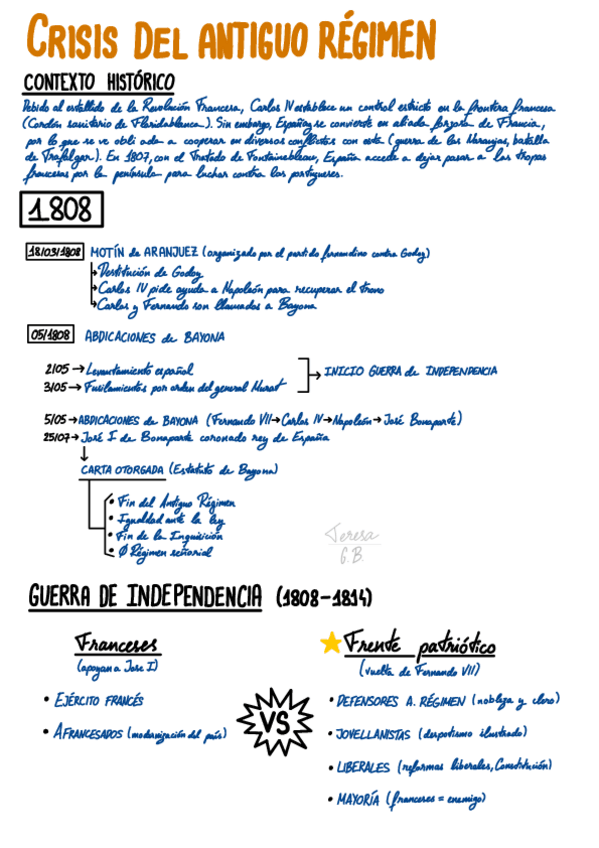 CRISIS DEL ANTIGUO RÉGIMEN
CONTEXTO HISTÓRICO
Debido al estallido de la Revolución Francesa, Carlos IV establece un control estricto en la frontera francesa
(Cordón sanitario de Floridablanca). Sin embargo, España se convierte en aliada forzosa de Francia,
por lo que se ve obli ada a cooperar en diversos conflictos con esta (guerra de las Naranjas, batalla
de Trafalgar). En 1807, con el Tratado de Fontainebleau, España accede a dejar pasar a las tropas
francesas por la península para luchar contra los portugueses.
1808
18/03/1808 MOTÍN de ARANJUEZ (organizado por el partido fernandino contra Godoy)
Destitución de Godoy
Carlos IV pide ayuda a Napoleón para recuperar el trono
Carlos y Fernando son llamados a Bayona
05/1808 ABDICACIONES de BAYONA
2/05 → Levantamiento español
3/05 → Fusilamientos por orden del general Murat
→ INICIO GUERRA de INDEPENDENCIA
5/05 → ABDICACIONES de BAYONA (Fernando VII → Carlos IV → Napoleón → José Bonaparte)
25/07 → José I de Bonaparte coronado rey de España
↓
CARTA OTORGADA (Estatuto de Bayona)
• Fin del Antiguo Régimen
• Igualdad ante la ley
• Fin de la Inquisición
• Ø Régimen señorial
Teresa
G.B.
GUERRA DE INDEPENDENCIA (1808-1814)
Franceses
(apoyan a Jose I)
• EJÉRCITO FRANCÉS
• AFRANCESADOS (modernización del país)
VS
Frente patriótico
(vuelta de Fernando VII)
• DEFENSORES A. RÉGIMEN (nobleza y clero)
• JOVELLANISTAS (despotismo ilustrado)
• LIBERALES (reformas liberales, Constitución)
• MAYORÍA (franceses = enemigo)